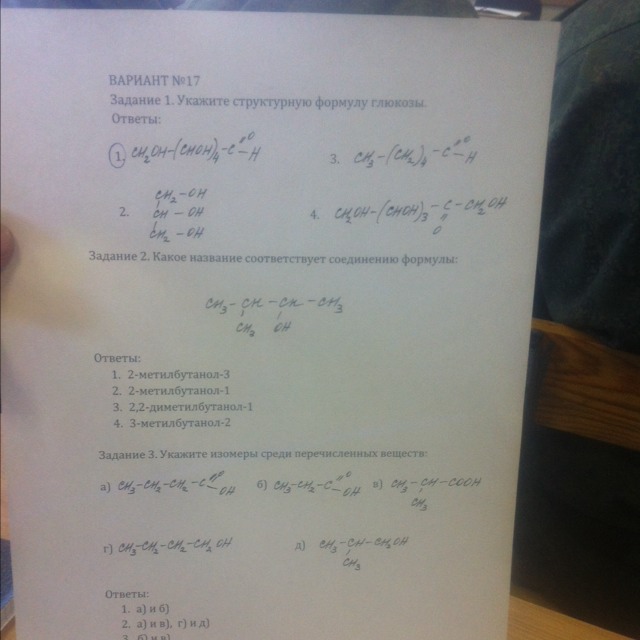 ВАРИАНТ №17
Задание 1. Укажите структурную формулу глюкозы.
Ответы:
1. CH2OH-(CHOH)4-C=O-H
3. CH3-(CH2)4-C=O-H
2. CH2-OH
CH-OH
CH2-OH
4. CH2OH-(CHOH)3-C-CH2OH
O
Задание 2. Какое название соответствует соединению формулы:
CH3-CH-CH-CH3
CH2 OH
Ответы:
1. 2-метилбутанол-3
2. 2-метилбутанол-1
3. 2,2-диметилбутанол-1
4. 3-метилбутанол-2
Задание 3. Укажите изомеры среди перечисленных веществ:
а) CH3-CH2-CH2-C=O-OH б) CH3-CH2-C=O-OH в) CH3-CH-COOH
CH3
г) CH3-CH2-CH2-CH2OH д) CH3-CH-CH2OH
CH3
Ответы:
1. а) и б)
2. а) и в), г) и д)
3. б) и в)